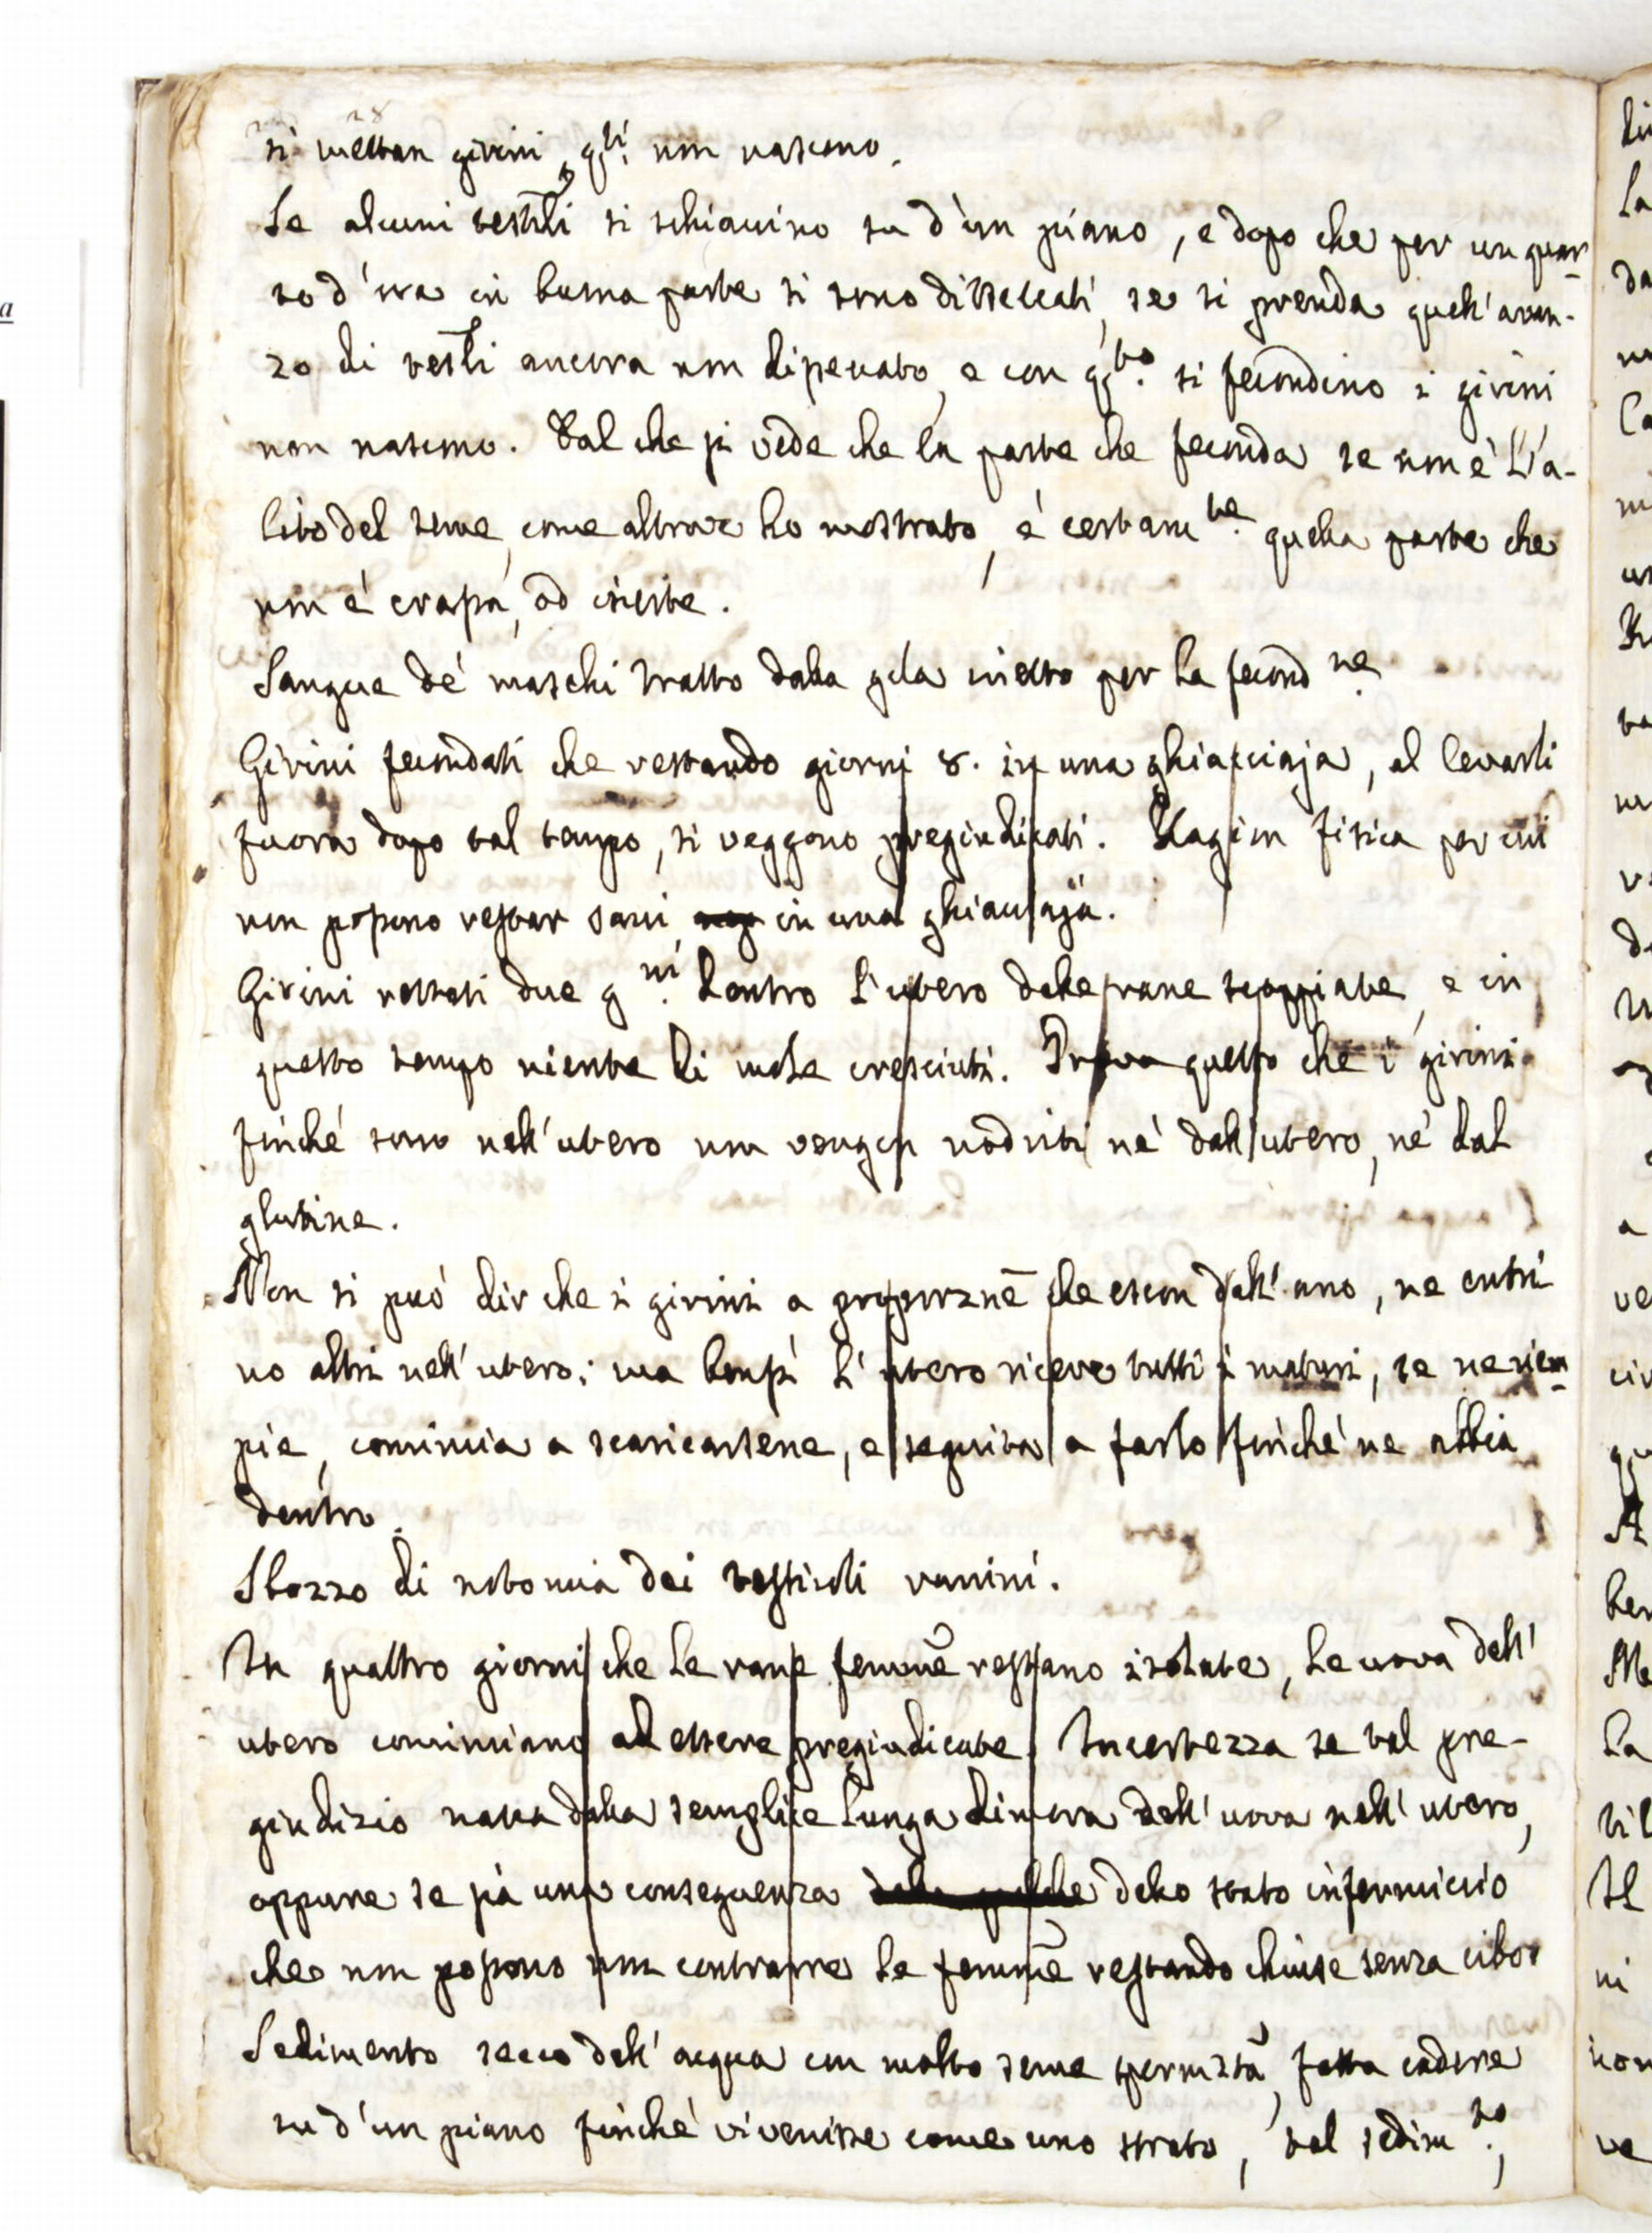 28
si mettan girini, q.sti non nascono.
Se alcuni testicoli si schiaccino su d'un piano, e dopo che per un quar-
to d'ora in buona parte si sono disseccati, se si prenda quell'avan-
zo di testicoli ancora non disseccato, e con q.sto si fecondino i girini
non nascono. Dal che si vede che la parte che feconda se non è l'a-
lito del seme, come altrove ho mostrato, è certam.te quella parte che
non è crassa, od inerte.
Sangue de' maschi tratto dalla gola inetto per la fecond.ne
Girini fecondati che restando giorni 8. in una ghiacciaja, al levarli
fuora dopo tal tempo, si veggono pregiudicati. Ragion fisica per cui
non possono restar sani in una ghiacciaja.
Girini restati due g.ni dentro l'utero delle rane scoppiate, e in
questo tempo niente di mole cresciuti. Prova questo che i girini
finché sono nell'utero non vengon nodriti né dall'utero, né dal
glutine.
Non si può dir che i girini a proporzne che escon dall'ano, ne entri-
no altri nell'utero; ma bensì l'utero riceve tutti i maturi, se ne riem-
pie, comincia a scaricarsene, e seguita a farlo finché ne abbia
dentro.
Sbozzo di notomia dei testicoli ranini.
In quattro giorni che le rane femme restano isolate, le uova dell'
utero cominciano ad essere pregiudicate. Incertezza se tal pre-
giudizio nasca dalla semplice lunga dimora dell'uova nell'utero,
oppure se sia una conseguenza dello stato infermiccio
che non possono non contrarre le femme restando chiuse senza cibo.
Sedimento secco dell'acqua con molto seme spermata, fatta cadere
su d'un piano finché vi venisse come uno strato, tal sedim.to,